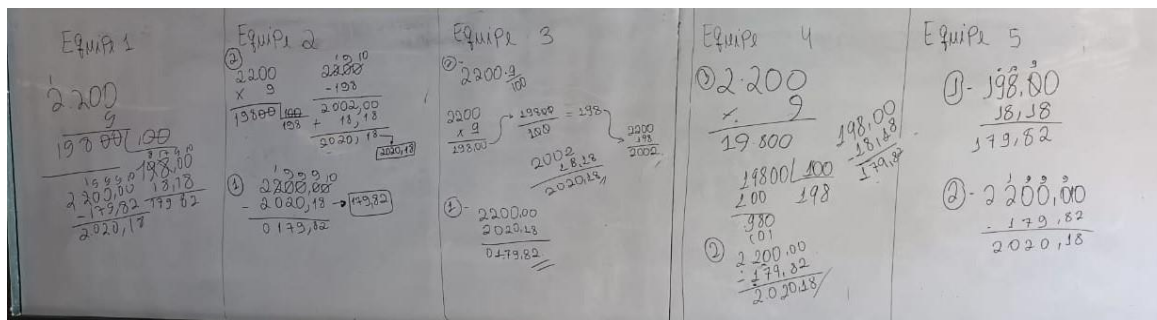 Equipe 1
2200
9
19800 100
198,00
2200,00 18,18
-179,82 179,82
2020,18
Equipe 2
②
2200
x 9
19800 100
198
2200
-198
2002,00
+ 18,18
2020,18
2020,18
① 2200,00
- 2020,18 → 179,82
0179,82
Equipe 3
2200·9/100
2200
x 9
19800
19800/100 = 198
2200
198
2002
2002
18,18
2020,18
2200,00
2020,18
0179,82
Equipe 4
2.200
x. 9
19.800
198,00
-18,18
179,82
19800 100
100 198
980
② 2200,00
-179,82
2.020,18
Equipe 5
①- 198,00
18,18
179,82
②- 2200,00
- 179,82
2020,18